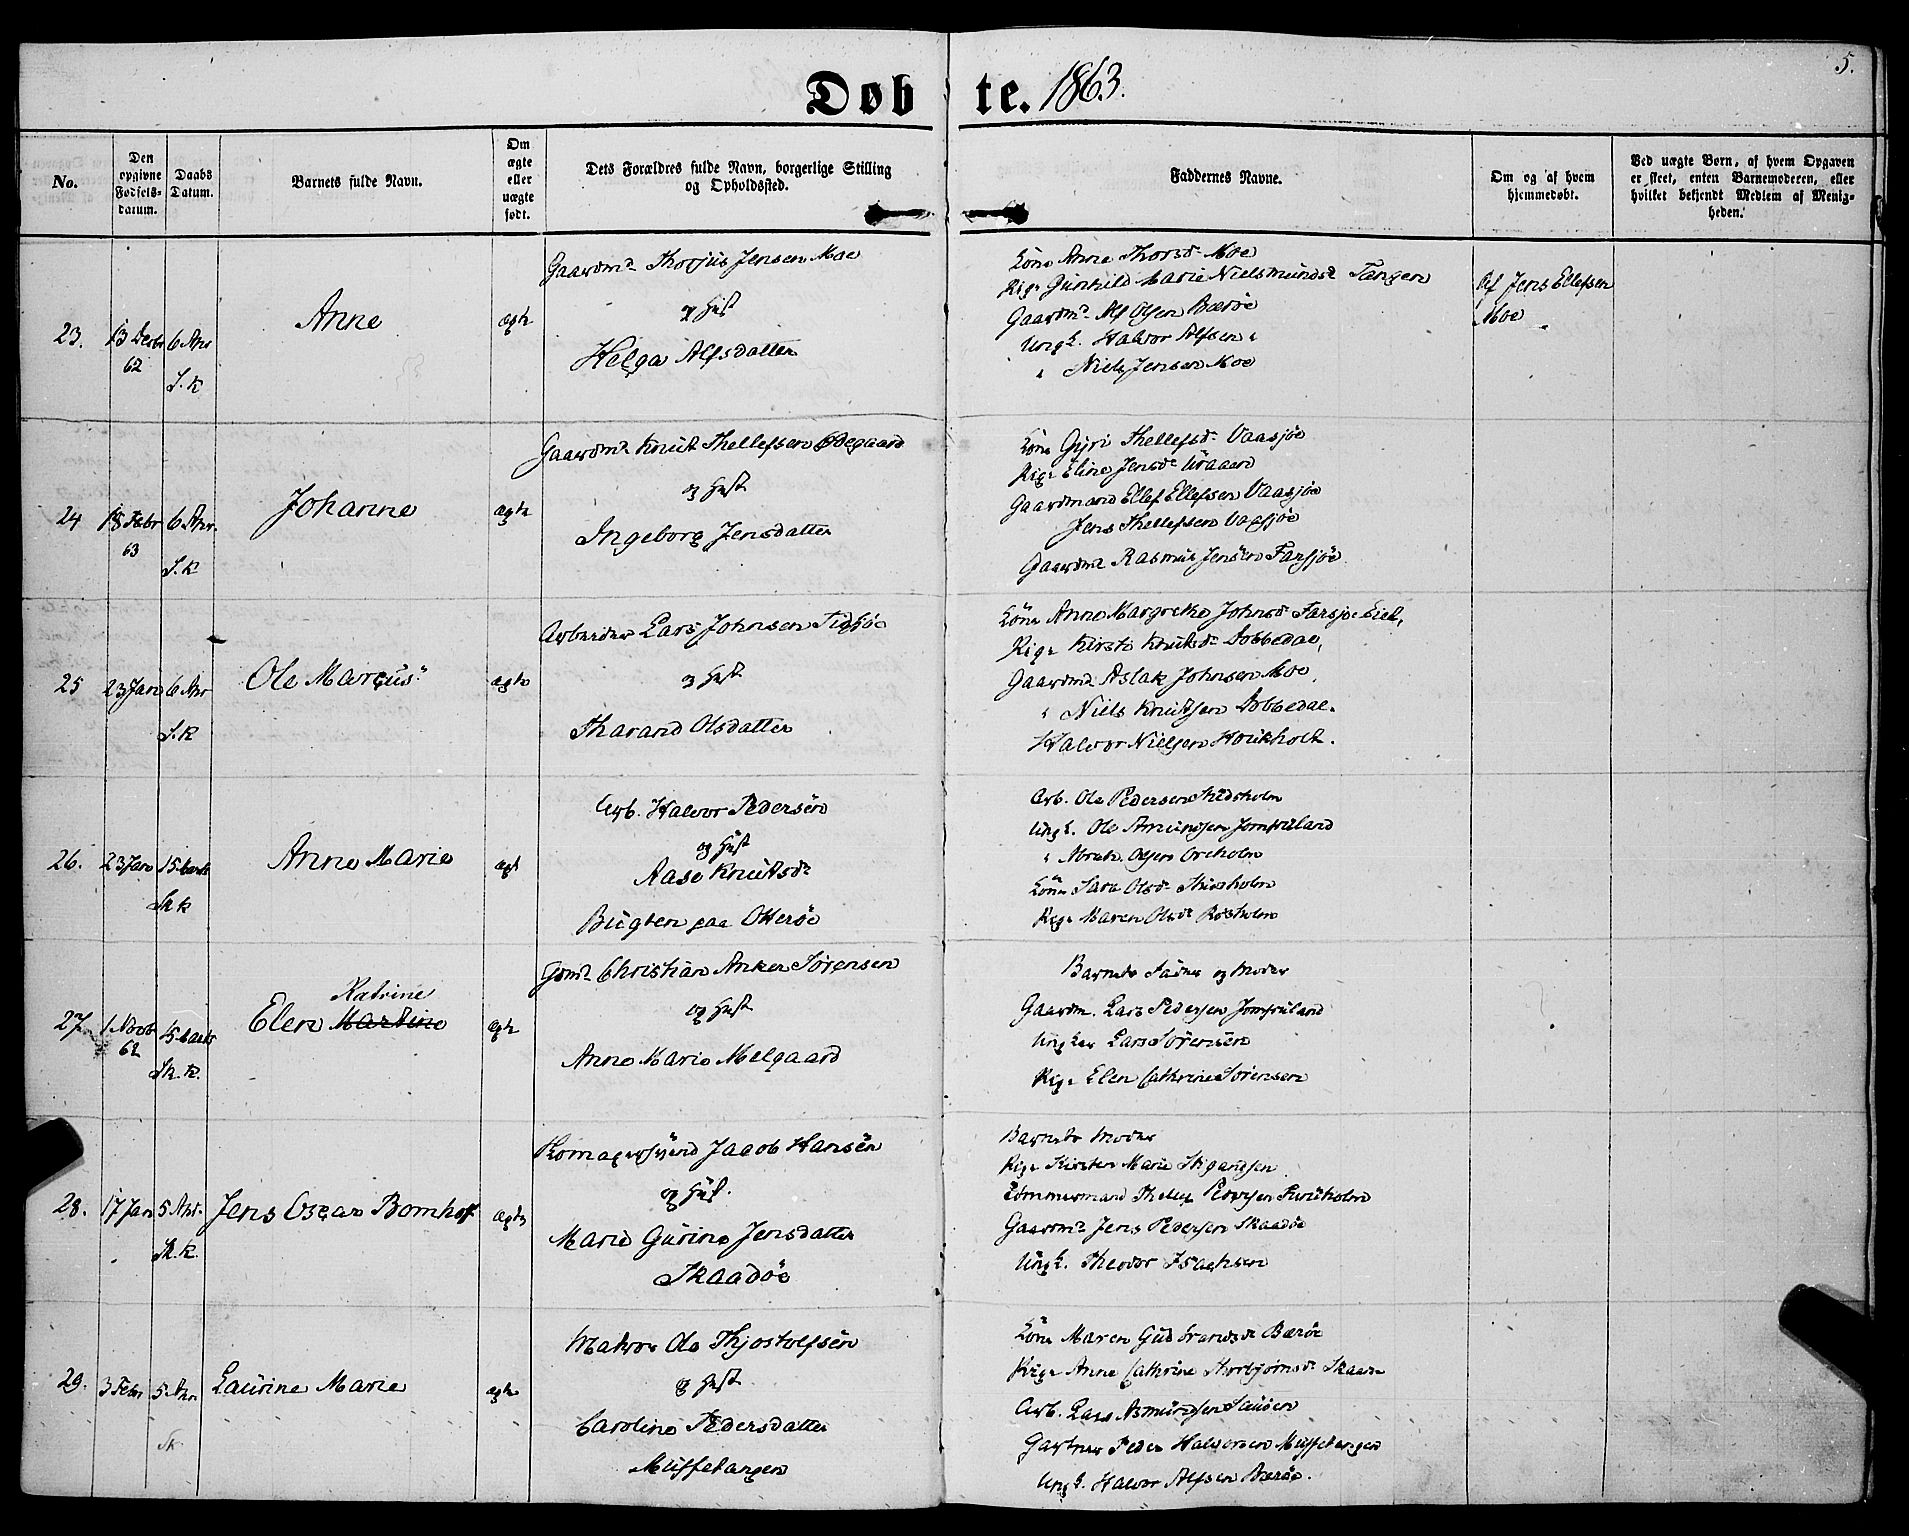 5.
Døbte. 1863.
No.
Den opgivne Fødsels-datum.
Daabs Datum.
Barnets fulde Navn.
Om ægte eller uægte født.
Dets Forældres fulde Navn, borgerlige Stilling og Opholdssted.
Faddernes Navne.
Om og af hvem hjemmedøbt.
Ved uægte Børn, af hvem Opgaven er skeet, enten Barnemoderen, eller hvilket bekjendt Medlem af Menigheden.
23.
13 Decbr 62
6 Apr
S.K
Anne
ægte
Gaardmd Thorjus Jensen Moe
og Hust
Helga Alfsdatter
Kone Anne Thorsd Moe
Pige Gunhild Marie Nielsmundsd Tangen
Gaardmd Alf Olsen Barøe
Ungk. Halvor Alfsen "
" Niels Jensen Moe
Af Jens Ellefsen
Moe
24
18 Febr 63
6 Apr.
S.K
Johanne
ægte
Gaardmd Knut Thellefsen Ødegaard
og Hust
Ingeborg Jensdatter
Kone Gyri Thellefsd Vaasjøe
Pige Eline Jensd
Gaardmand Ellef Ellefsen Vaasjøe
Jens Thellefsen Vaasjøe
Gaardmd Rasmus Jensen Farsjøe
25
23 Jan
6 Apr
S.K
Ole Marcus
ægte
Arbeider Lars Johnsen
og Hust
Tharand Olsdatter
Kone Anne Margrethe Johnsd Farsjøe Eiet,
Pige Kirsti Knutsd Dobbedal,
Gaardmd Aslak Johnsen Moe,
" Niels Knutsen Dobbedal.
Halvor Nielsen Houkholt.
26.
23 Jan
15 Marts
Sk K
Anne Marie
ægt
Arb. Halvor Pedersen
og Hust
Aase Knutsd
Bugten paa Otterøe
Arb. Ole Pedersen
Ungk. Ole Amundsen Jomfruland
" Olsen
Kone Sara Olsd
Pige Maren Olsd
27.
1 Novb 62
15 Marts
Sk. K.
Katrine
Elen Martine
ægte
Gdmd Christian Anker Sørensen
og Hust
Anne Marie Melgaard
Barnets Fader og Moder
Gaardm. Lars Pedersen Jomfruland
Ungkar Lars Sørensen
Pige Elen Cathrine Sørensen
28.
17 Jan
5 Apr.
Sk. K.
Jens Oscar Bomhof
ægte
Skomagersvend Jacob Hansen
og Hust.
Marie Gurine Jensdatter
Skaadøe
Barnets Moder
Pige Kirsten Marie Stigandsen
Tømmermand Thellef Pedersen
Gaardmd Jens Pedersen Skaadøe
Ungk. Theodor Isachsen
29.
3 Febr
5 Apr
Sk
Laurine Marie
ægte
Matros Ole Thjostolfsen
og Hust
Caroline Pedersdatter
Muffetangen
Kone Maren Gudbrandsd Barøe
Pige Anne Cathrine Thorbjørnsd Skaadøe
Arb. Lars Asmundsen
Gartner Peder Halvorsen Muffetangen
Ungk. Halvor Alfsen Barøe.